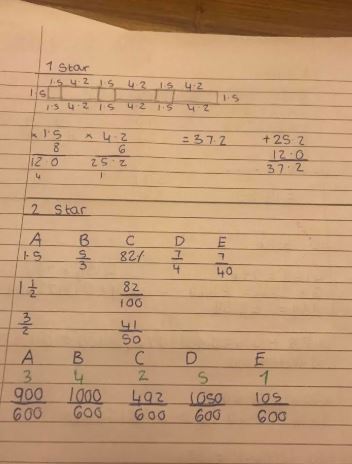 1 Star
1.5 4.2 1.5 4.2 1.5 4.2
1.5 1.5
1.5 4.2 1.5 4.2 1.5 4.2
× 1.5 × 4.2 = 37.2 + 25.2
8 6 12.0
12.0 25.2 37.2
4 1
2 Star
A B C D E
1.5 5/3 82% 7/4 7/40
1 1/2 82/100
3/2 41/50
A B C D E
3 4 2 5 1
900/600 1000/600 492/600 1050/600 105/600